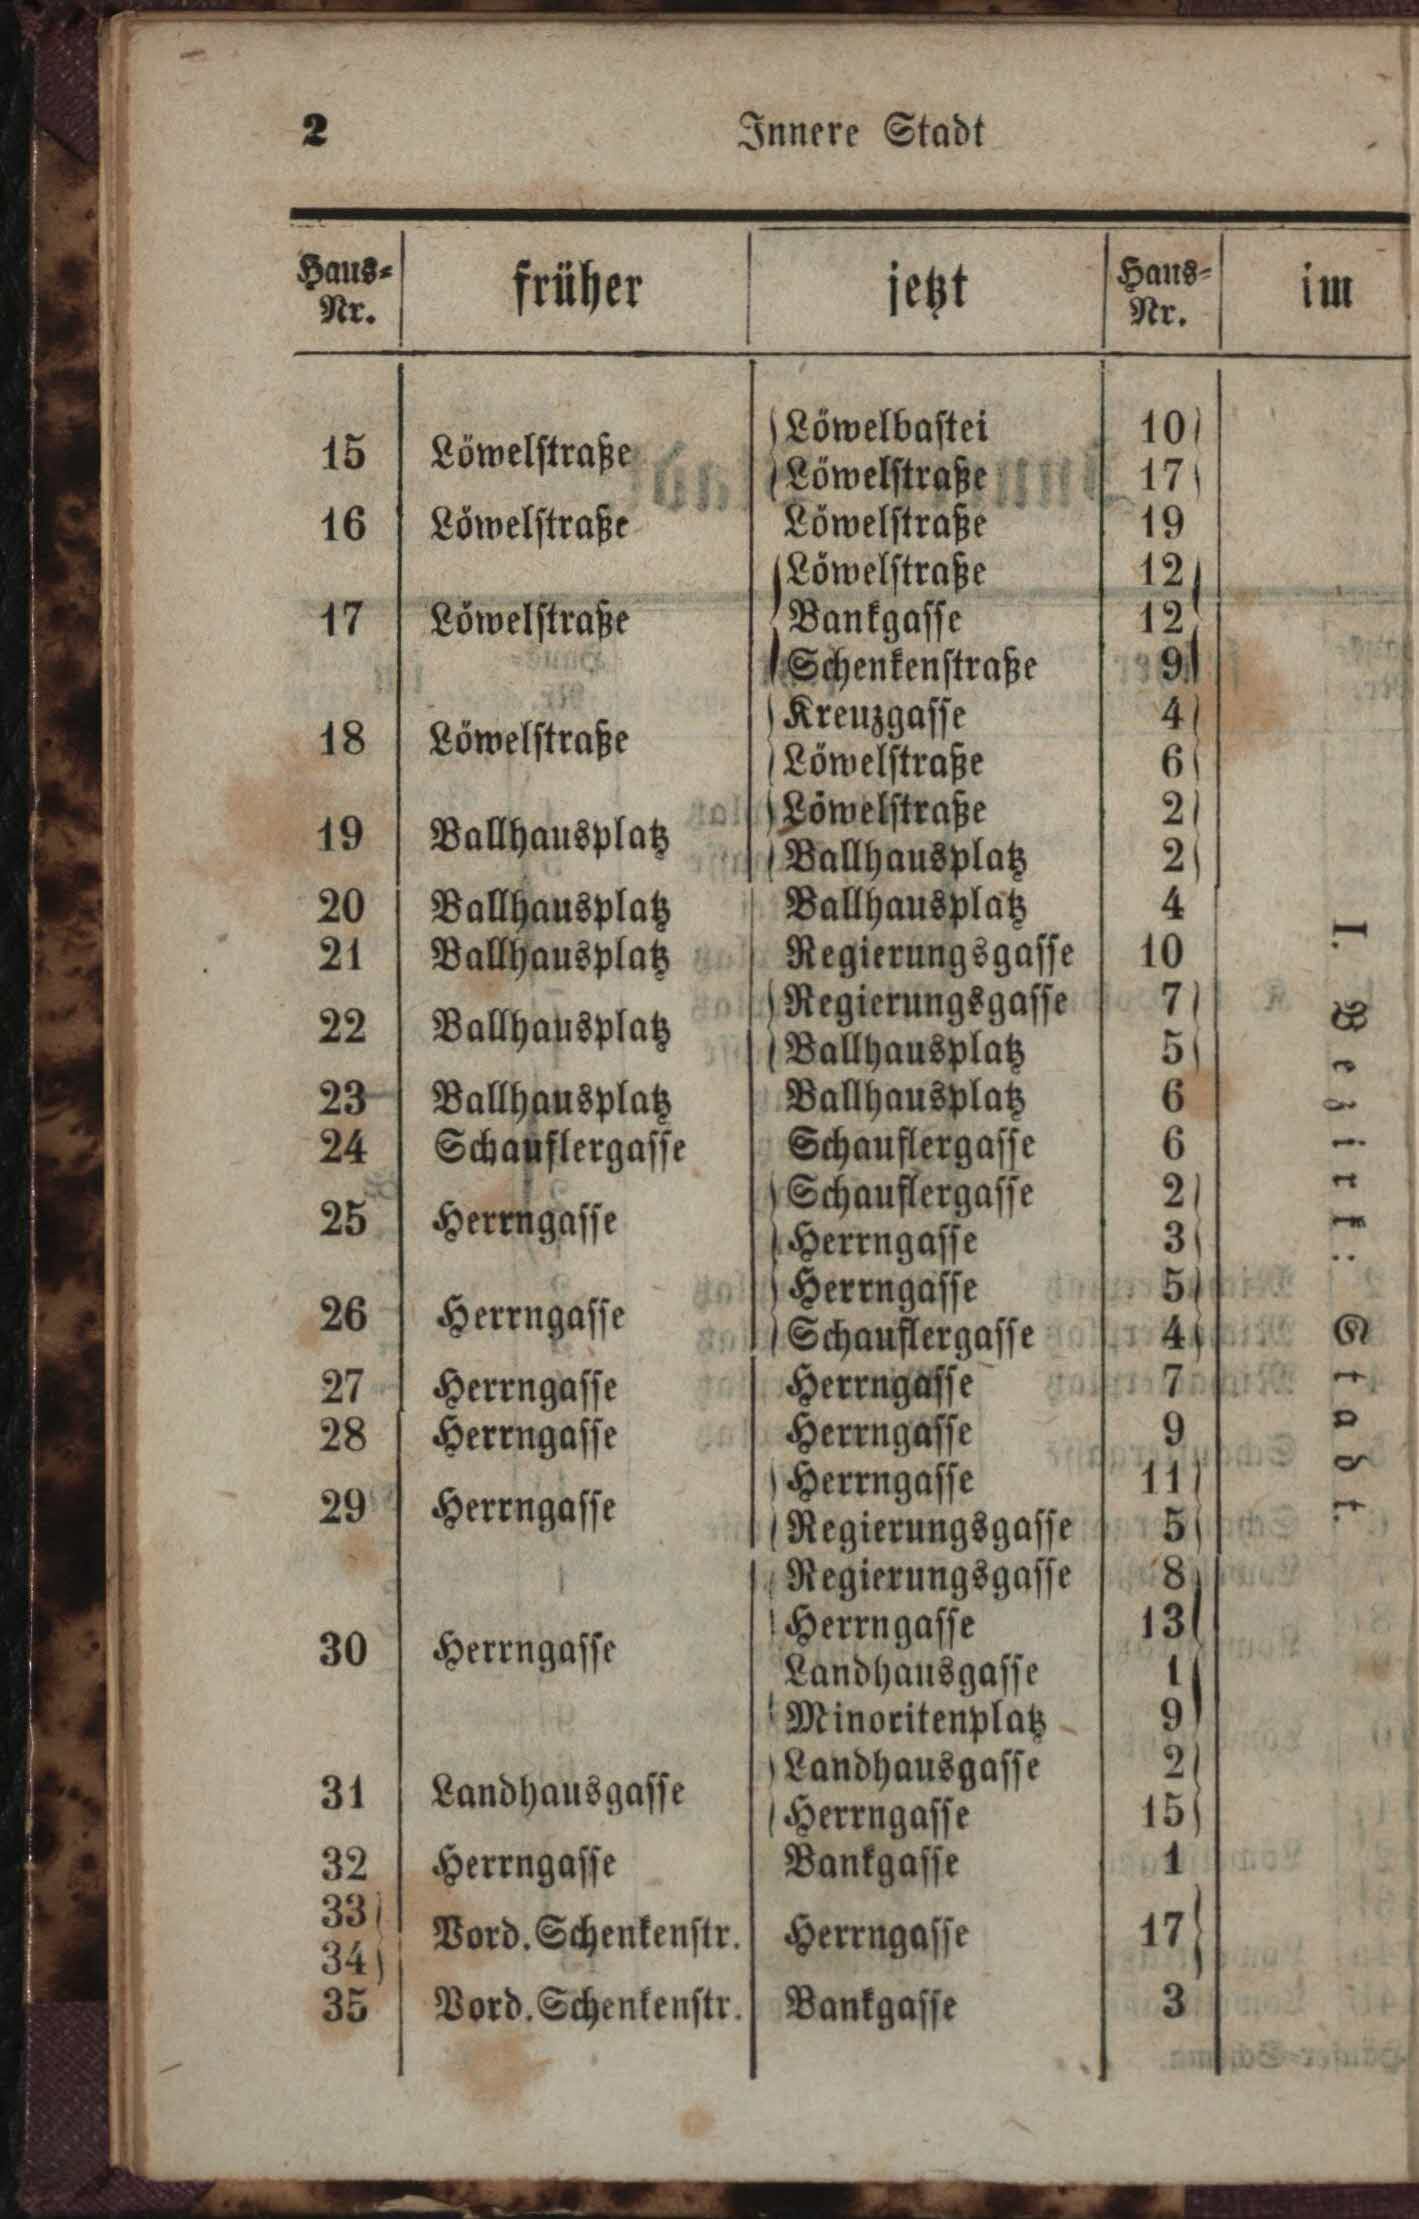 2 Innere Stadt
Haus-Nr. früher jetzt Haus-Nr. im
15 Löwelstraße Löwelbastei 10
Löwelstraße 17
16 Löwelstraße Löwelstraße 19
Löwelstraße 12
17 Löwelstraße Bankgasse 12
Schenkenstraße 9
18 Löwelstraße Kreuzgasse 4
Löwelstraße 6
19 Ballhausplatz Löwelstraße 2
Ballhausplatz 2
20 Ballhausplatz Ballhausplatz 4
21 Ballhausplatz Regierungsgasse 10
22 Ballhausplatz Regierungsgasse 7
Ballhausplatz 5
23 Ballhausplatz Ballhausplatz 6
24 Schauflergasse Schauflergasse 6
25 Herrngasse Schauflergasse 2
Herrngasse 3
26 Herrngasse Herrngasse 5
Schauflergasse 4
27 Herrngasse Herrngasse 7
28 Herrngasse Herrngasse 9
29 Herrngasse Herrngasse 11
Regierungsgasse 5
Regierungsgasse 8
30 Herrngasse Herrngasse 13
Landhausgasse 1
Minoritenplatz 9
31 Landhausgasse Landhausgasse 2
Herrngasse 15
32 Herrngasse Bankgasse 1
33
34 Vord. Schenkenstr. Herrngasse 17
35 Vord. Schenkenstr. Bankgasse 3
I. Bezirk: Stadt.